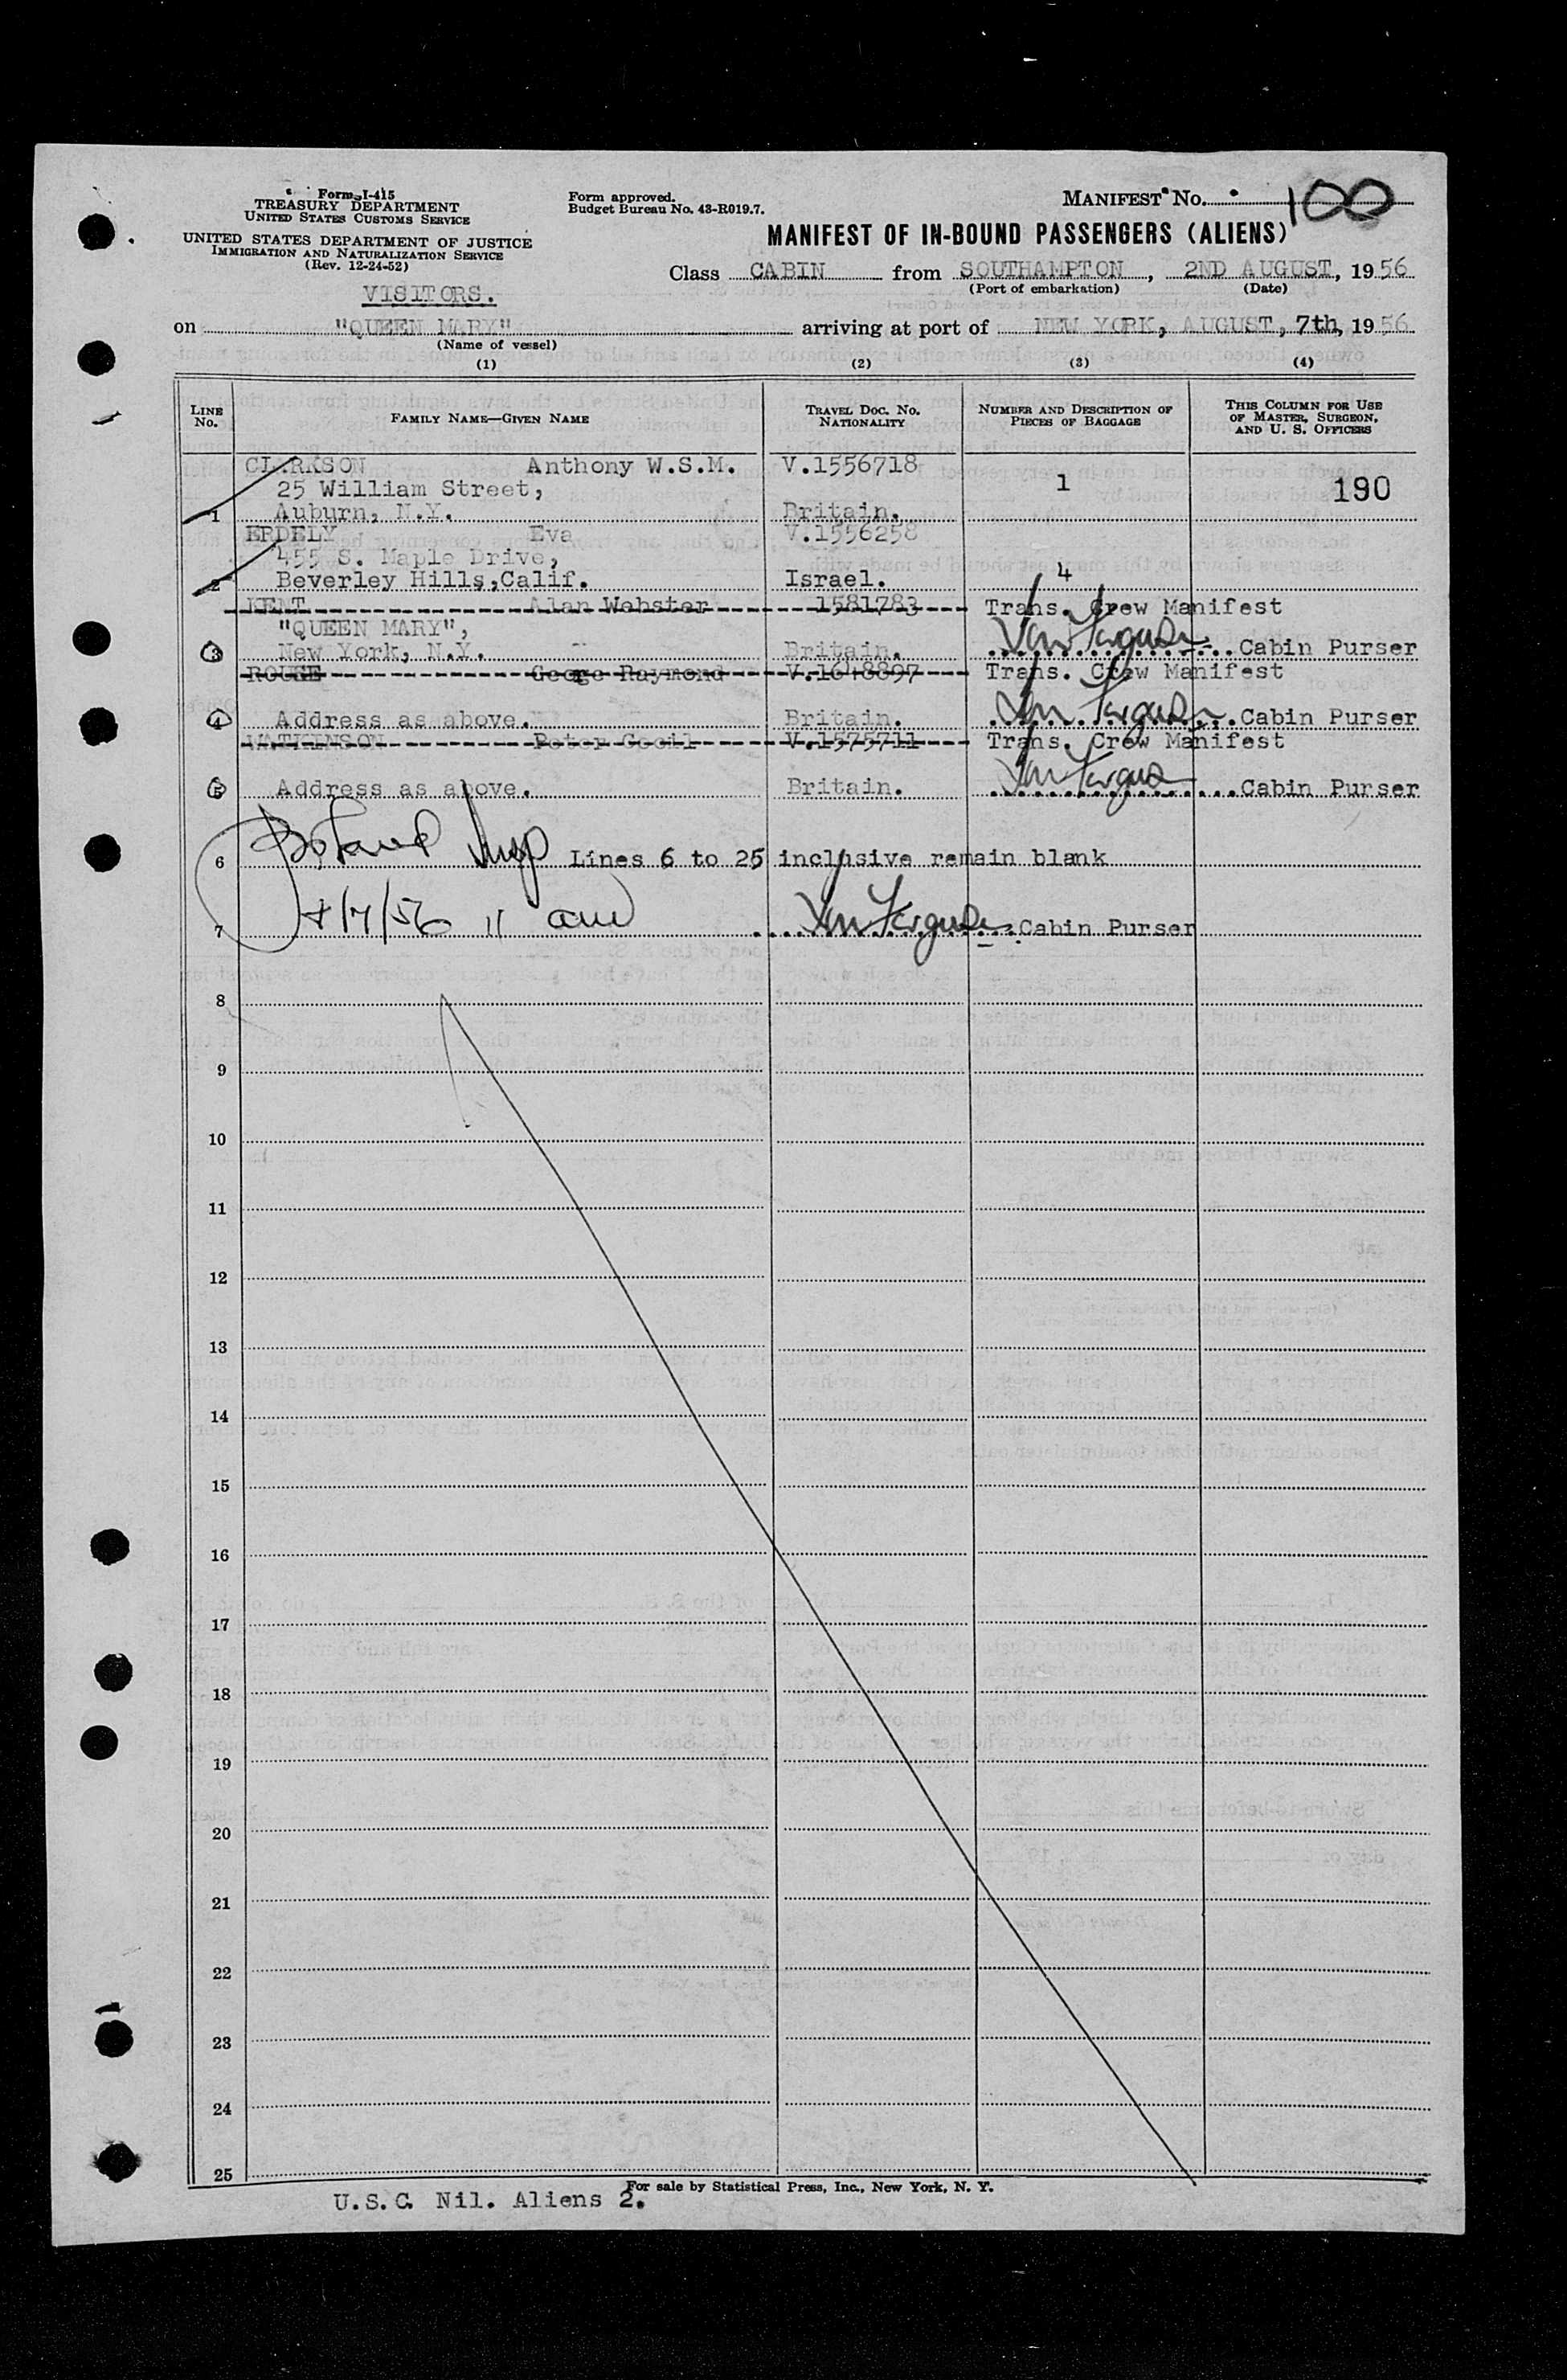 Form I-415
TREASURY DEPARTMENT
UNITED STATES CUSTOMS SERVICE
UNITED STATES DEPARTMENT OF JUSTICE
IMMIGRATION AND NATURALIZATION SERVICE
(Rev. 12-24-52)
VISITORS.
Form approved.
Budget Bureau No. 43-R019.7.
MANIFEST No. 100
MANIFEST OF IN-BOUND PASSENGERS (ALIENS)
Class CABIN from SOUTHAMPTON, 2ND AUGUST, 1956
(Port of embarkation) (Date)
on "QUEEN MARY" arriving at port of NEW YORK, AUGUST, 7th, 1956
(Name of vessel)
(1) (2) (3) (4)
LINE No. FAMILY NAME—GIVEN NAME TRAVEL DOC. No. NATIONALITY NUMBER AND DESCRIPTION OF PIECES OF BAGGAGE THIS COLUMN FOR USE OF MASTER, SURGEON, AND U. S. OFFICERS
CLARKSON Anthony W.S.M. V.1556718
25 William Street, 1 190
1 Auburn, N.Y. Britain.
ERDELY Eva V.1556258
455 S. Maple Drive,
2 Beverley Hills,Calif. Israel. 4
KENT Alan Webster 1581783 Trans. Crew Manifest
"QUEEN MARY",
3 New York, N.Y. Britain. Cabin Purser
ROUSE George Raymond V.1648897 Trans. Crew Manifest
4 Address as above. Britain. Cabin Purser
WATKINSON Peter Cecil V.1575711 Trans. Crew Manifest
5 Address as above. Britain. Cabin Purser
6 Lines 6 to 25 inclusive remain blank
7 8/7/56 11 am Cabin Purser
8
9
10
11
12
13
14
15
16
17
18
19
20
21
22
23
24
25
For sale by Statistical Press, Inc., New York, N. Y.
U.S.C. Nil. Aliens 2.